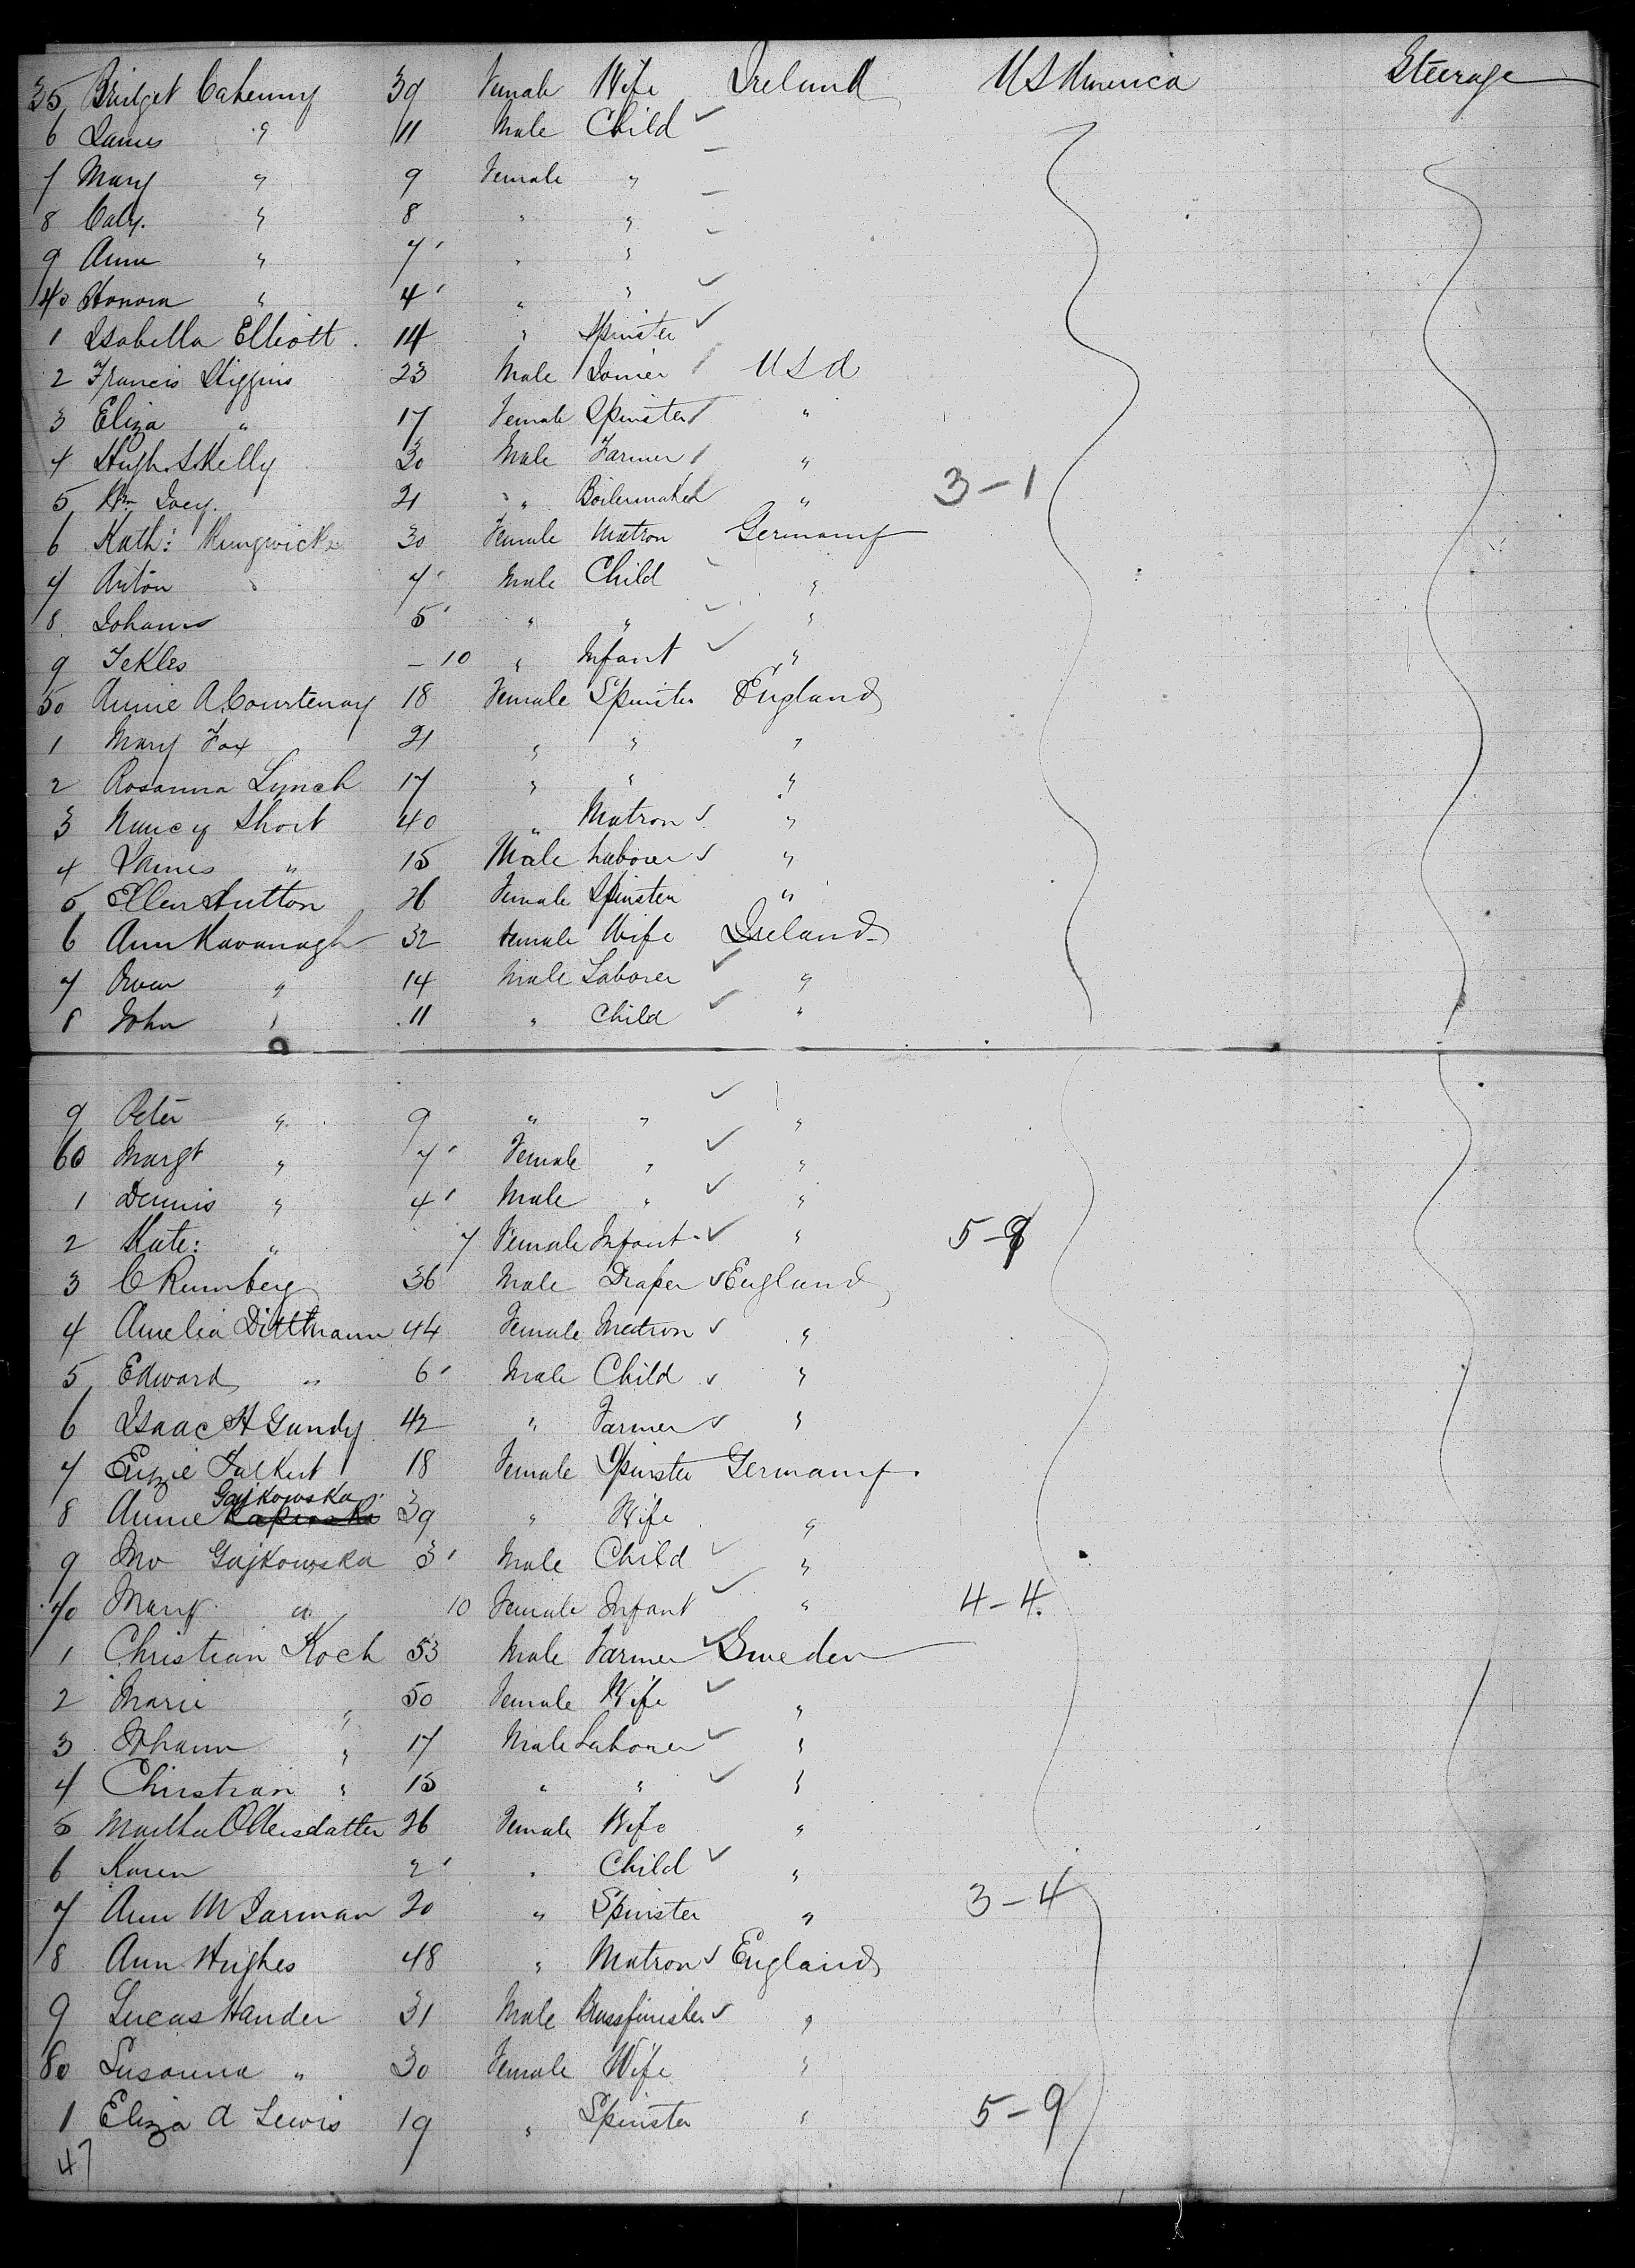 35 Bridget Cahenny 39 Female Wife Ireland U S America Steerage
6 James " 11 Male Child ✓
7 Mary " 9 Female "
8 Cath. " 8 " "
9 Anne " 7 " "
40 Honora " 4 " " ✓
1 Isabella Elliott 14 " Spinster ✓
2 Francis Higgins 23 Male Joiner U S A
3 Eliza " 17 Female Spinster "
4 Hugh Skelly 30 Male Farmer "
5 Wm 21 " Boilermaker " 3-1
6 Kath: 30 Female Matron Germany
7 Anton " 7 Male Child "
8 Johann 5 " " ✓ "
9 Tekles - 10 " Infant ✓ "
50 Annie A. Courtenay 18 Female Spinster England
1 Mary Fox 21 " " "
2 Rosanna Lynch 17 " " "
3 Nancy Short 40 " Matron ✓ "
4 James " 15 Male Laborer ✓ "
5 Ellen Hutton 26 Female Spinster "
6 Ann Kavanagh 32 Female Wife Ireland
7 Owen " 14 Male Laborer ✓ "
8 John " 11 " Child ✓ "
9 Peter " 9 " " ✓ "
60 Margt " 7 Female " ✓ "
1 Dennis " 4 Male " ✓ "
2 Kate: " 7 Female Infant ✓ " 5-9
3 C Rumberg 36 Male Draper ✓ England
4 Amelia Dittmann 44 Female Matron ✓ "
5 Edward " 6 Male Child ✓ "
6 Isaac H Gundy 42 " Farmer ✓ "
7 18 Female Spinster Germany
8 Annie Gajkowska 39 " Wife "
9 Jno Gajkowska 3 Male Child ✓ "
70 Mary " 10 Female Infant ✓ " 4-4
1 Christian Koch 53 Male Farmer ✓ Sweden
2 Marie " 50 Female Wife ✓ "
3 Johann " 17 Male Laborer ✓ "
4 Christian " 15 " " ✓ "
5 Martha Ollersdatter 26 Female Wife "
6 Karen 2 " Child ✓ "
7 Ann M Jarman 20 " Spinster " 3-4
8 Ann Hughes 48 " Matron ✓ England
9 Lucas Hander 31 Male Brassfinisher ✓ "
80 Susanna " 30 Female Wife "
1 Eliza A Lewis 19 " Spinster " 5-9
47